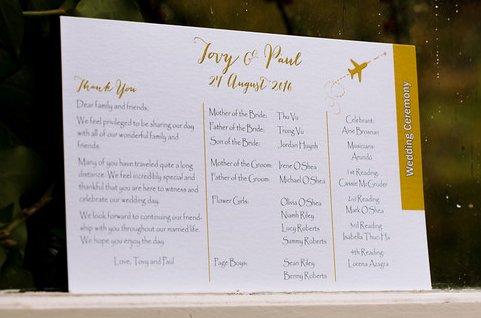 Tovy & Paul
24 August 2016
Thank You
Dear family and friends,
We feel privileged to be sharing our day
with all of our wonderful family and
friends.
Many of you have traveled quite a long
distance. We feel incredibly special and
thankful that you are here to witness and
celebrate our wedding day.
We look forward to continuing our friend-
ship with you throughout our married life.
We hope you enjoy the day.
Love, Tovy and Paul
Mother of the Bride: Thu Vu
Father of the Bride: Trong Vu
Son of the Bride: Jordan Huynh
Mother of the Groom: Irene O'Shea
Father of the Groom: Michael O'Shea
Flower Girls: Olivia O'Shea
Niamh Riley
Lucy Roberts
Sammy Roberts
Page Boys: Sean Riley
Benny Roberts
Celebrant:
Aine Brosnan
Musicians:
1st Reading:
Cassie McGruder
2nd Reading:
Mark O'Shea
3rd Reading:
Isabella Thuc-Ha
4th Reading:
Lorena Azagra
Wedding Ceremony